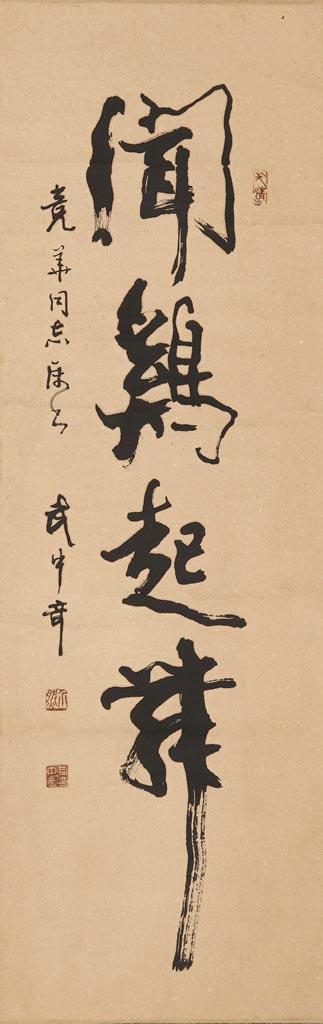 聞鷄起舞
竞華同志屬正
武中奇